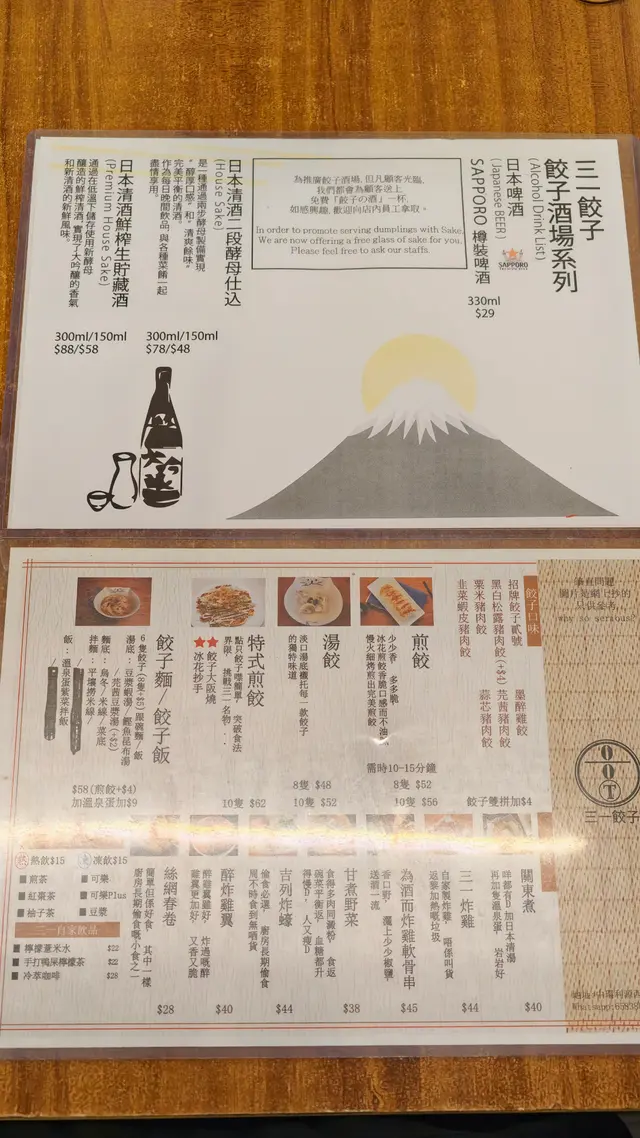 三一餃子
餃子酒場系列
(Alcohol Drink List)
日本啤酒
(Japanese BEER)
SAPPORO
SAPPORO 樽裝啤酒
330ml
$29
為推廣餃子酒場, 但凡顧客光臨,
我們都會為顧客送上
免費「餃子の酒」一杯,
如感興趣, 歡迎向店內員工拿取。
In order to promote serving dumplings with Sake,
We are now offering a free glass of sake for you.
Please feel free to ask our staffs.
日本清酒二段酵母仕込
(House Sake)
是一種通過兩步酵母製備實現
"醇厚口感" 和 "清爽餘味"
完美平衡的清酒。
作為每日晚間飲品, 與各種菜餚一起
盡情享用。
300ml/150ml
$78/$48
日本清酒鮮榨生貯藏酒
(Premium House Sake)
通過在低溫下儲存使用新酵母
釀造的鮮榨清酒, 實現了大吟釀的香氣
和新清酒的新鮮風味。
300ml/150ml
$88/$58
why so serious
OOT
三一餃子
餃子口味
招牌餃子貳號
黑白松露豬肉餃(+$4)
粟米豬肉餃
韭菜蝦皮豬肉餃
墨醉雞餃
芫茜豬肉餃
蒜芯豬肉餃
餃子雙拼加$4
煎餃
少少香 多多脆
冰花煎餃香脆口感而不油
慢火細烤煎出完美煎餃
需時10-15分鐘
8隻 $52
10隻 $56
湯餃
淡口湯底襯托每一款餃子
的獨特味道
8隻 $48
10隻 $52
特式煎餃
點只餃子嘢簡單, 突破食法
界限, 挑戰三一名物:
★★餃子大阪燒
冰花抄手
10隻 $62
餃子麵/餃子飯
6隻餃子(8隻+$5)跟碗麵/飯
湯底: 豆漿蝦湯/鰹魚昆布湯
/芫茜豆漿湯(+$2)
麵底: 烏冬/米線/菜底
拌麵: 平壤撈米線/
飯: 溫泉蛋紫菜拌飯
$58(煎餃+$4)
加溫泉蛋加$9
關東煮
咩都有D加日本清湯
再加隻溫泉蛋, 岩岩好
$40
三一炸雞
自家製炸雞, 唔係叫貨
返黎加熱嘅垃圾
$44
為酒而炸雞軟骨串
香口野, 灑上少少椒鹽
送酒一流
$45
甘煮野菜
食得多肉同澱粉, 食返
碗菜平衡返, 血糖都升
得慢D, 人又瘦D
$38
吉列炸蠔
偷食必選, 廚房長期偷食
周不時食到無晒貨
$44
醉炸雞翼
鮮雞翼雖好, 炸過嘅醉
雞翼更加好, 又香又脆
$40
絲網春卷
簡單但係好食, 其中一樣
廚房長期偷食嘅小食之一
$28
熱飲$15
■ 煎茶
■ 紅棗茶
■ 柚子茶
凍飲$15
■ 可樂
■ 可樂Plus
■ 豆漿
三一自家飲品
■ 檸檬薏米水 $22
■ 手打鴨屎檸檬茶 $22
■ 冷萃咖啡 $28